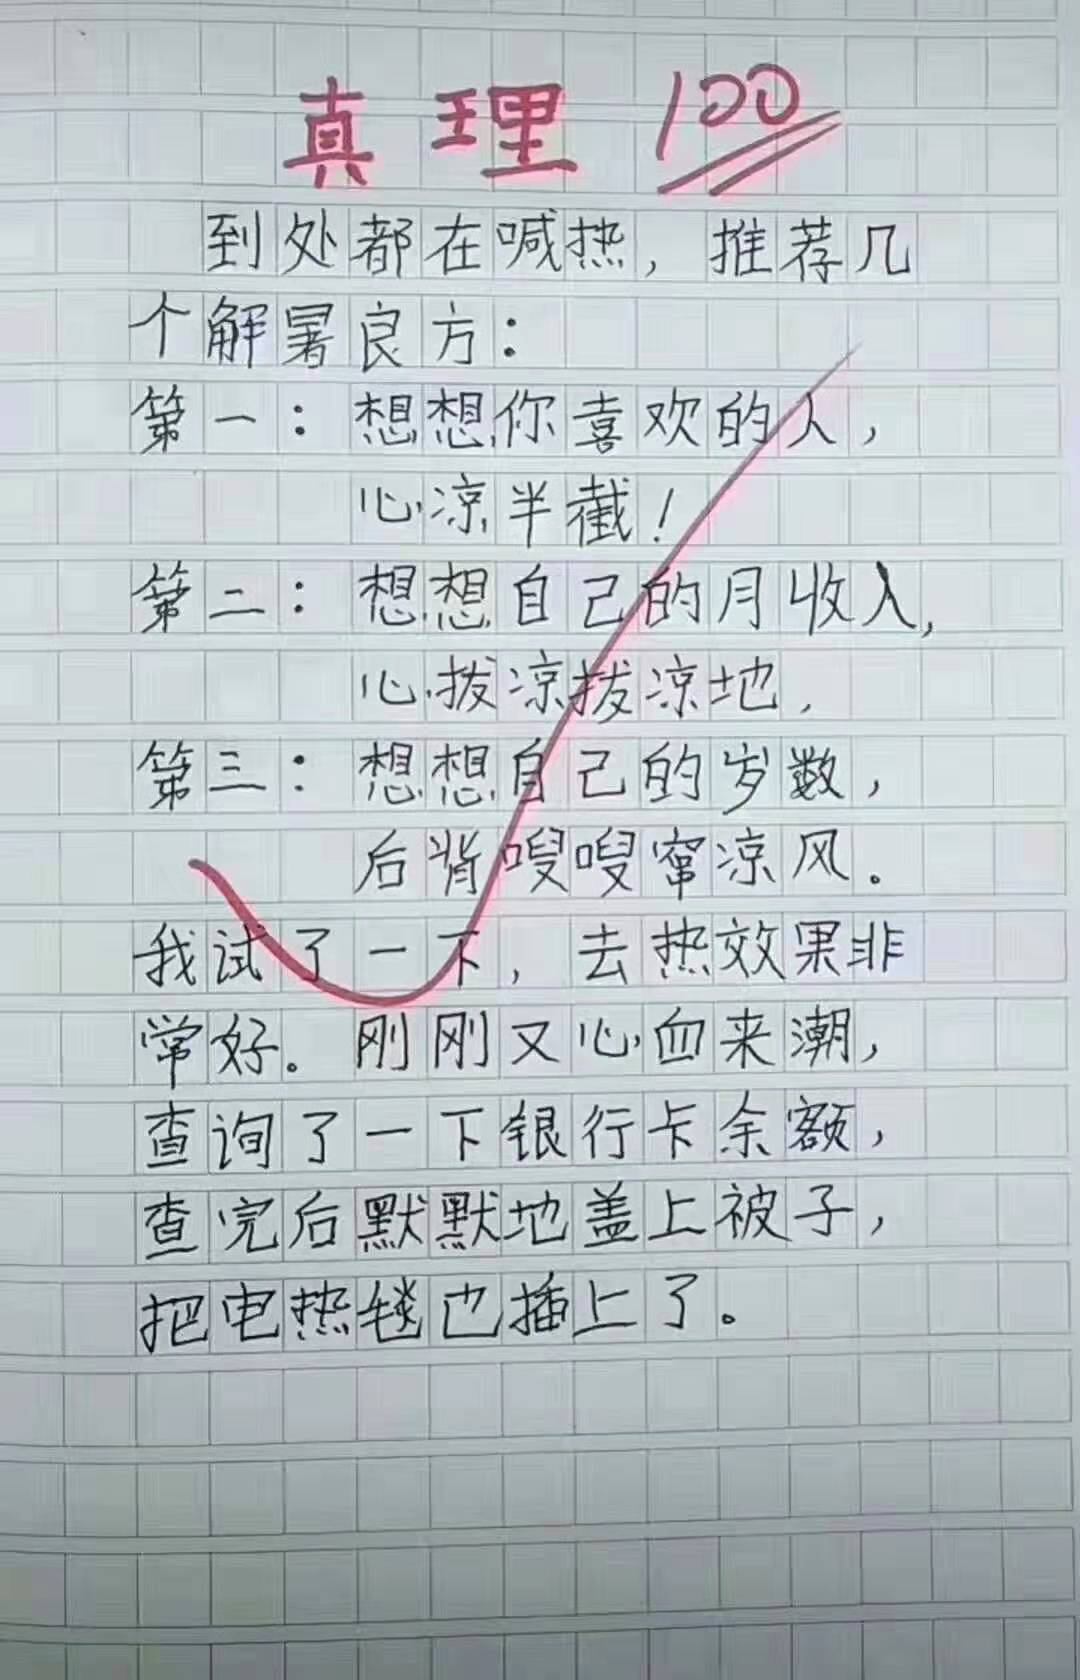 真理 100
到处都在喊热，推荐几
个解暑良方：
第一：想想你喜欢的人，
心凉半截！
第二：想想自己的月收入，
心拔凉拔凉地，
第三：想想自己的岁数，
后背嗖嗖窜凉风。
我试了一下，去热效果非
常好。刚刚又心血来潮，
查询了一下银行卡余额，
查完后默默地盖上被子，
把电热毯也插上了。